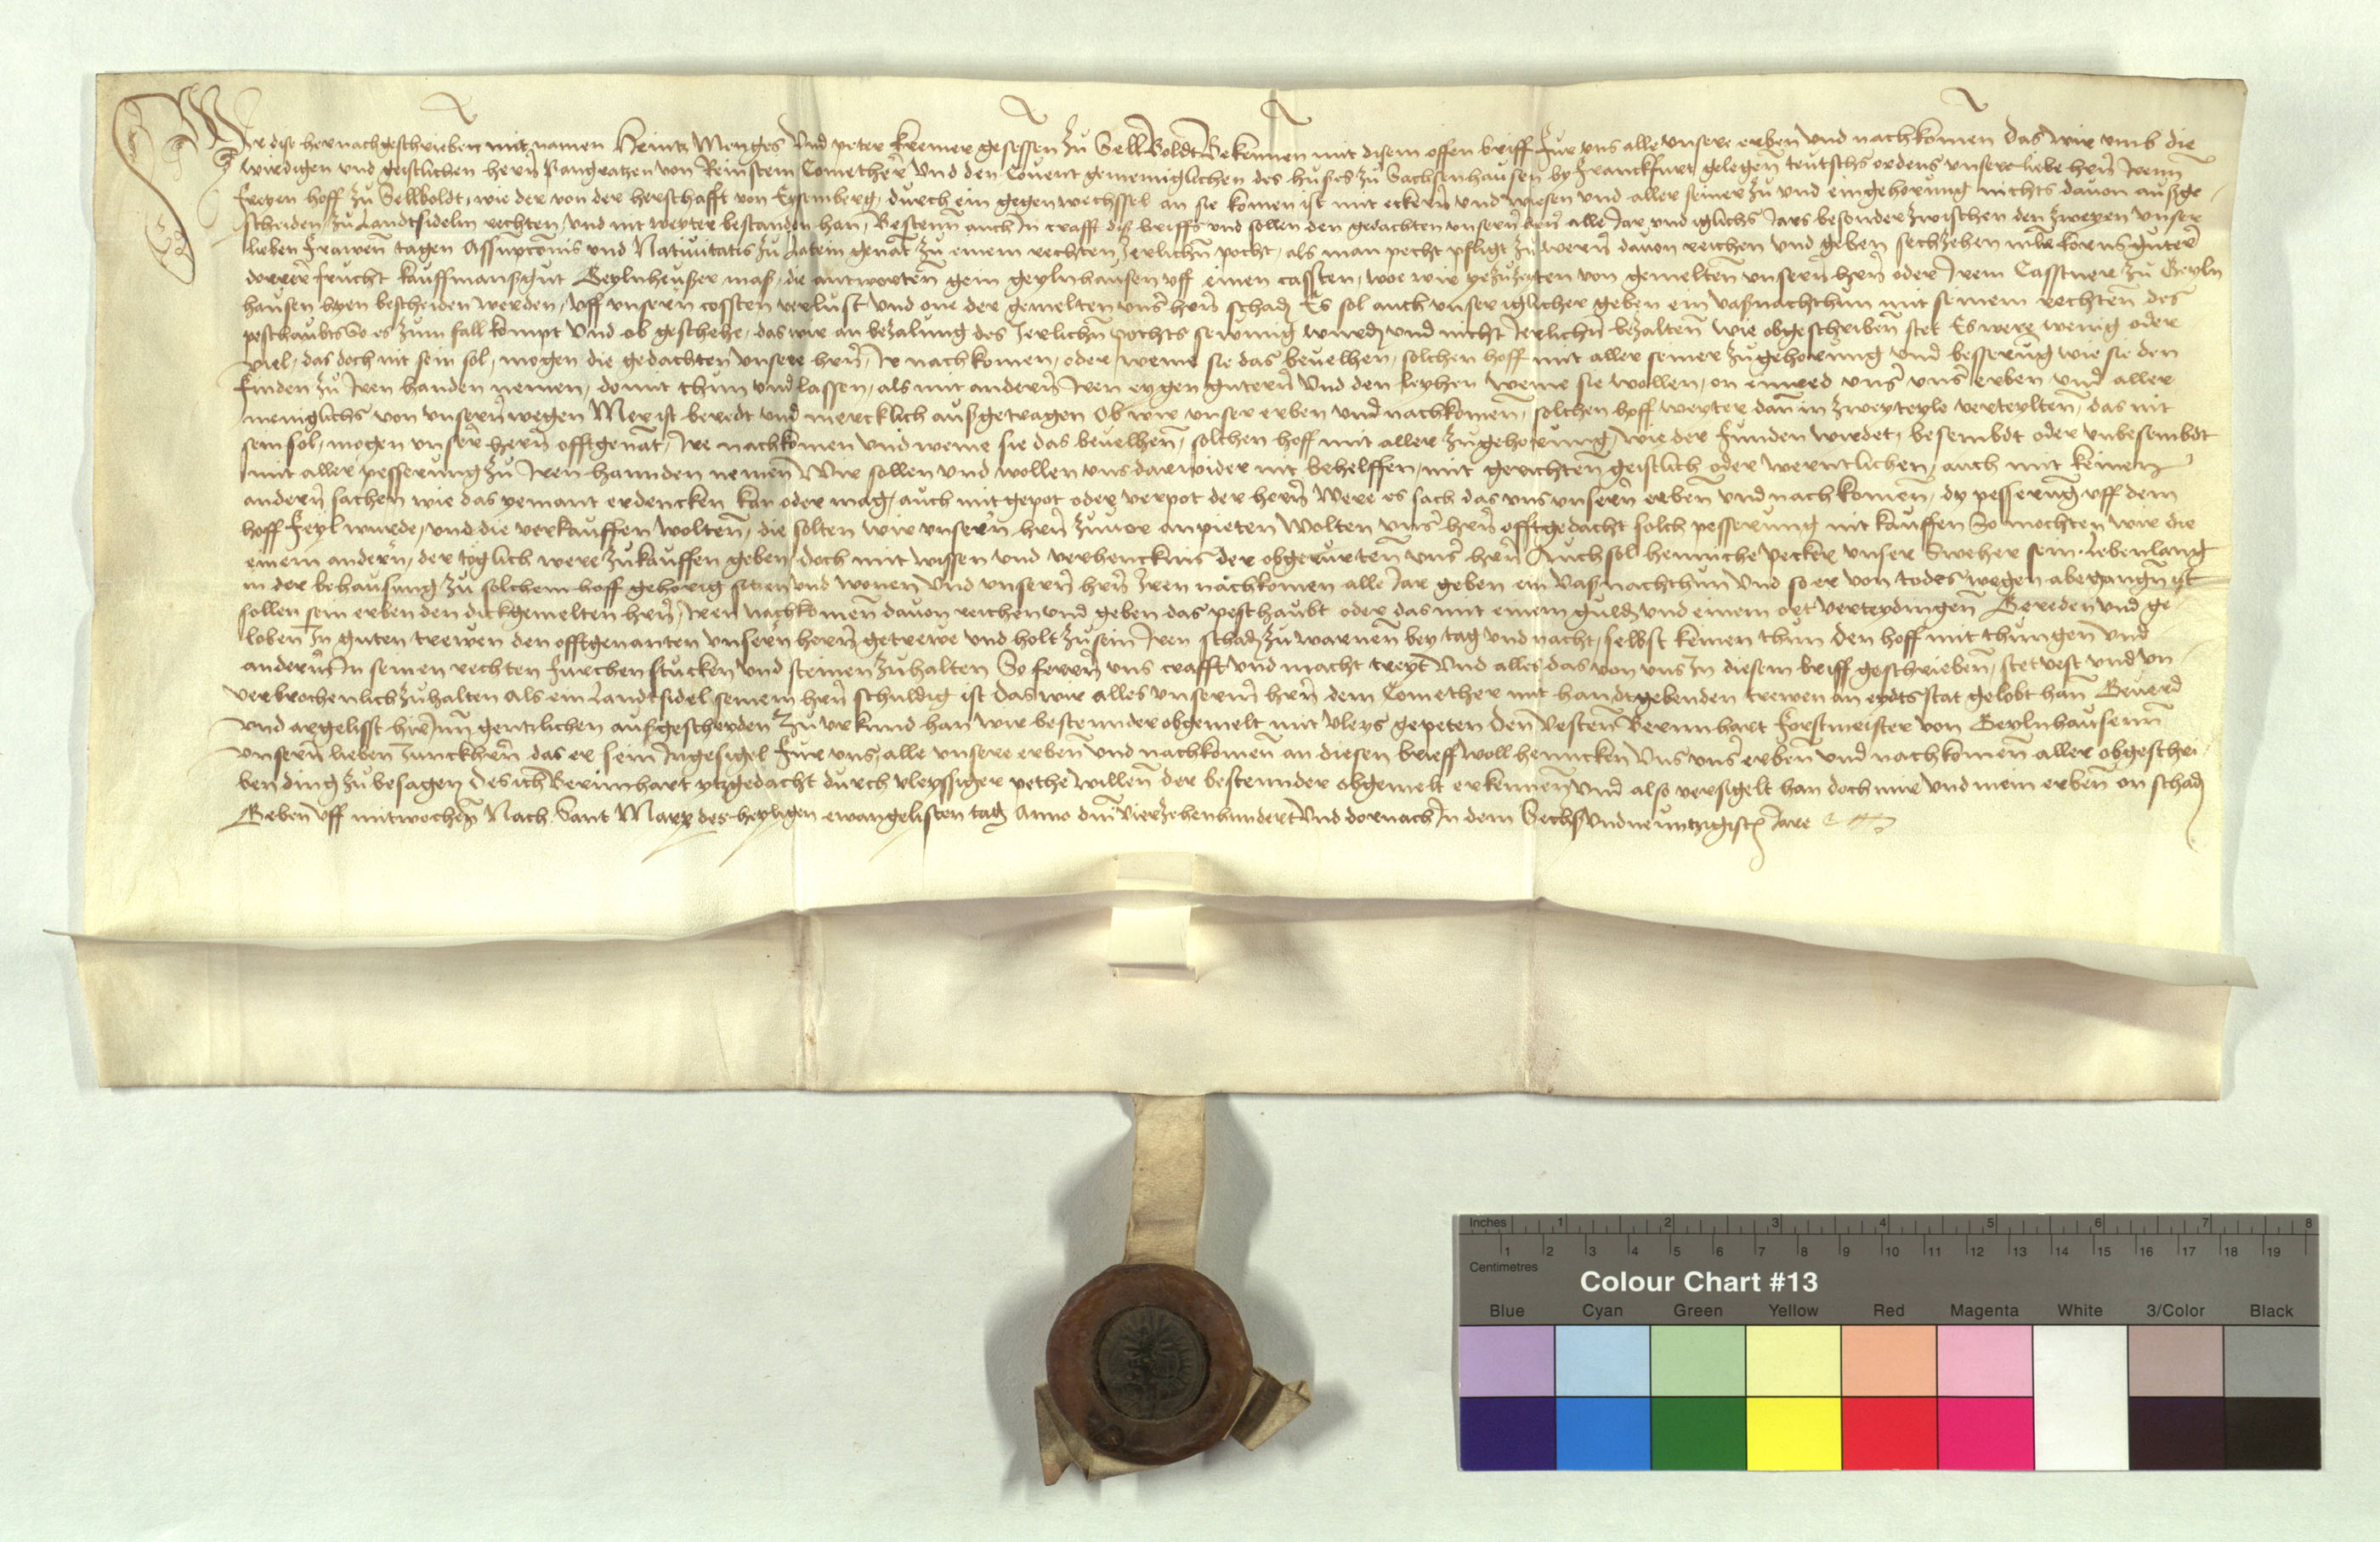 Wir dise hernachgeschrieben mit namen Heintz Menges Und peter kremer gesessen zu SellBoldt Bekennen mit disem offen briff Fur uns alle unsere erben Und nachkomen Das wir umb die
wirdigen und geistlichen hern̄ Pangratzen von Reinstein Comether̄ Und den Covent gemeiniglichen des huses zu Sachsenhausen by Franckfurt gelegen teutschs ordens unsere liebe hrn̄ Iren̄
freyen hoff zu Sellboldt, wie der von der herschafft von Eysemberg, durch ein gegenwechssel an sie komen ist mit eckern̄ und wiesen und aller seiner zu und eingehorung nichts davon außge-
scheiden, zu Landtsideln rechten, und nit weyter bestanden han, Besteen̄ auch In crafft diß briffs und sollen den gedachten unsern̄ hrn̄ alle Jar und iglichs Jars besonder zwischen den zweyen unser
lieben Frawen̄ tagen Assumpc̄onis und Nativitatis zu Latein genāt zu einem rechten Jerlichn̄ pocht, als man pecht pfligt zu wern̄ davon reichen und geben sechzehen mltr korns guter̄
dorrer̄ frucht kauffmanßgut Geylnheußer maß, die antworten̄ gein geylnhausen uff einen cassten, woe wir ye zu zeiten von gemelten̄ unsern̄ hrn̄ oder Irem Casstner zu Geyln
hausen hyen bescheiden werden, uff unsern cossten verlust Und one der gemelten uns̄ hrn̄ schadn Es sol auch unser iglicher geben ein vaßnachthun mit seinem rechten̄ des
pesthaubts So es zum fall kompt Und ob geschehe, das wir an bezalung des Jerlichn̄ pochts sewmig wurdn und nicht Jerlichn̄ bezalten̄ wie obgeschriben̄ stet Es were wenig oder
viel, das doch nit sein sol, mogen die gedachten unsere hrn̄, Ir nachkomen, oder weme sie das bevelhen, solchen hoff mit aller seiner zugehorung und besserūg wie sie den
finden zu Iren handen nemen, domit thun und lassen, als mit andern̄ Iren eygen gutern̄ Und den leyhen weme sie wollen, on einred uns̄ uns̄ erben und aller
meniglichs von unsern̄ wegen Mer ist beredt und mercklich außgetragen Ob wir unser erben und nachkomen̄, solchen hoff weyter dan̄ in zwey teyle verteylten̄, das nit
sein sol, mogen unser̄ hern̄ offtgenāt, Ire nachkomen und weme sie das bevelhen̄, solchen hoff mit aller zugehorung, wie der funden wirdet, besembdt oder unbesembdt
mit aller pesserung zu Iren hannden nemen̄ Wir sollen und wollen uns darwider nit behelffen, mit gerichten geistlich oder werntlichen, auch mit keinen
andern̄ sachen wie das yemant erdencken kan oder mag, auch mit gepot oder verpot der hern̄ Were es sach das uns unsern̄ erben̄ und nachkomen̄, dy pesserūg uff dem
hoff feyl wurde, und die verkauffen wolten̄, die solten wir unsern̄ hrn̄ zuvor anpieten Wolten uns̄ hrn̄ offtgedacht solch pesserung nit kauffen So mochten wir die
einem andern̄, der toglich were zukauffen geben, doch mit wissen und verhencknis der obgerurten̄ uns̄ hrn̄ Auch sol henniche pecker unser Sweher sein Lebenlang
in der behausung zu solchem hoff gehorig sitzen und wonen Und unsern̄ hrn̄ Iren nachkomen alle Jar geben ein vaßnachthun Und so er von todes wegen abegangn̄ ist
sollen sein erben den dickgemelten hrn̄, Iren nachkomen̄ davon reichen und geben das pesthaubt oder das mit einem guldn und einem ort verteydingen̄ Gereden und ge-
loben In guten trewen den offtgenanten unsern̄ hern̄ getrewe und holt zu sein Iren schadn zu warnen̄ bey tag und nacht, selbst keinen thun Den hoff mit thungen und
andern̄ In seinen rechten furchen stucken und steinen zuhalten So ferr̄n uns crafft und macht treyt Und alles das von uns In diesem briff geschrieben̄, stet vest und un-
verbrochenlich zuhalten als ein Landtsidel seinem hrn̄ schuldig ist Das wir alles unserm̄ hrn̄ dem Comether mit handtgebenden trewen an eydts stat gelobt han̄ Geverd
Und argelisst hirInn̄ gentzlichen außgescheyden Zu urkund han wir bestennder obgemelt mit vleys gepeten den̄ Vesten̄ Bernnhart Forstmeister von Geylnhausenn̄
unsern̄ lieben Junckhern̄ das er sein Ingesigel Fur uns, alle unsere erben̄ und nachkomen̄ an diesen brieff woll henncken Uns uns̄ erben̄ und nachkomen̄ aller obgeschri-
ben ding zubesagen Des ich Bernnhart ytzgedacht durch vleyssiger pethe willen̄ der bestennder obgemelt erkennen̄ Und also versigelt han doch mir und mein erben̄ on schadn
Geben uff mitwochen̄ Nach Sant Marx des heyligen ewangelisten tag Anno dm̄ Vierzehenhundert Und dornach In dem Sechs Und neuntzigistn Jare
Inches 1 2 3 4 5 6 7 8
1 2 3 4 5 6 7 8 9 10 11 12 13 14 15 16 17 18 19
Centimetres
Colour Chart #13
Blue Cyan Green Yellow Red Magenta White 3/Color Black